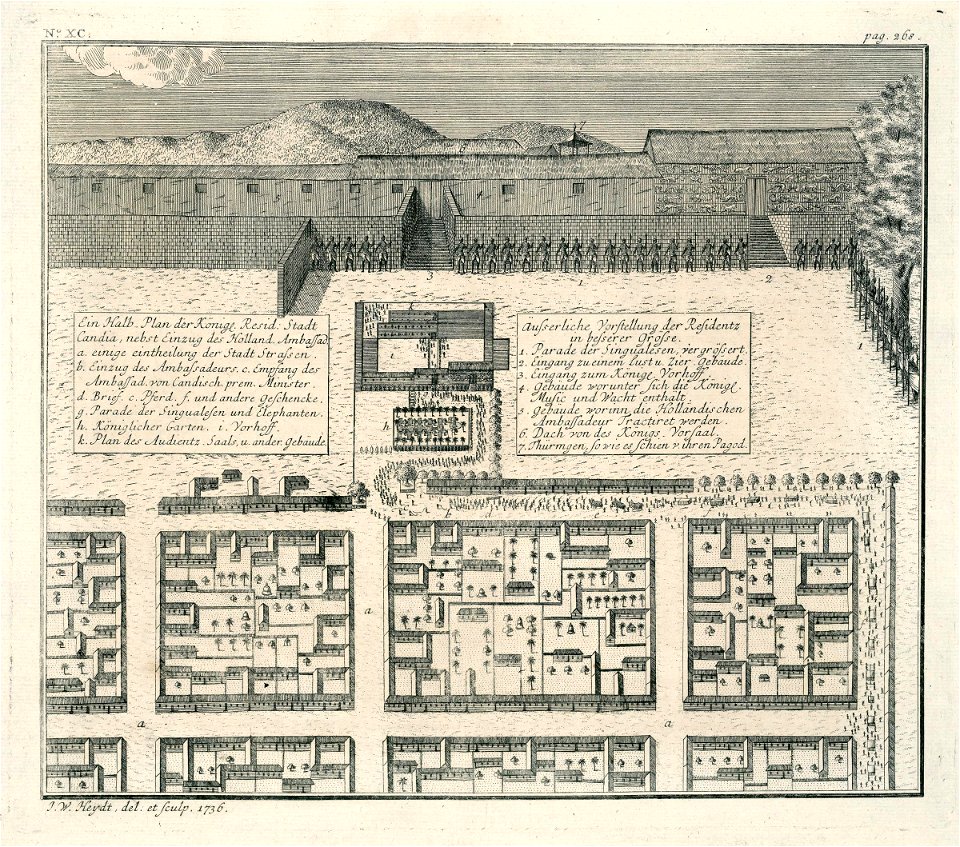 No. XC.
pag. 268.
Ein Halb. Plan der Königl. Resid. Stadt
Candia, nebst Einzug des Holland. Ambassad.
a. einige eintheilung der Stadt Strassen.
b. Einzug des Ambassadeurs. c. Empfang des
Ambassad. von Candisch. prem. Minister.
d. Brief. e. Pferd. f. und andere Geschencke.
g. Parade der Singualesen und Elephanten.
h. Königlicher Garten. i. Vorhoff.
k. Plan des Audientz. Saals, u. ander. Gebäude.
Ausserliche Vorstellung der Residentz
in besserer Grösse.
1. Parade der Singualesen, vergrössert.
2. Eingang zu einem Lust u. Zier. Gebäude.
3. Eingang zum Königl. Vorhoff.
4. Gebäude worunter sich die Königl.
Music und Wacht enthalt.
5. Gebäude worinn die Holländischen
Ambassadeur Tractiret werden.
6. Dach von des Königs. Vorsaal.
7. Thürmgen, so wie es schien v. ihren Pagod.
5
4
3
1
2
1
k
i
h
a
a
a
I. W. Heydt, del. et sculp. 1736.